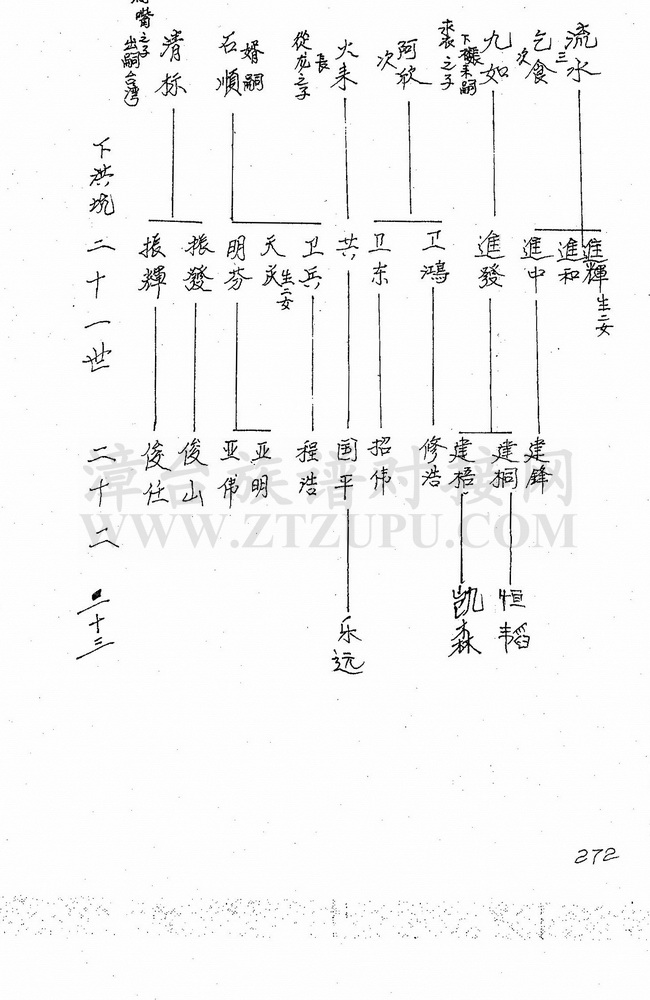 流水
三
乞食
次
九如
之子
阿欣
次
火来
長
從龙之子
婿嗣
石順
清标
之子
出嗣台湾
下洪坑
二十一世
進輝
生二女
進和
進中
進發
卫鴻
卫东
共
卫兵
天庆
生二女
明芬
振發
振輝
二十二
建鋒
建桐
建梧
修浩
招伟
国平
程浩
亚明
亚伟
俊山
俊任
二十三
恒韬
凯森
乐远
漳台族谱对接网
WWW.ZTZUPU.COM
272